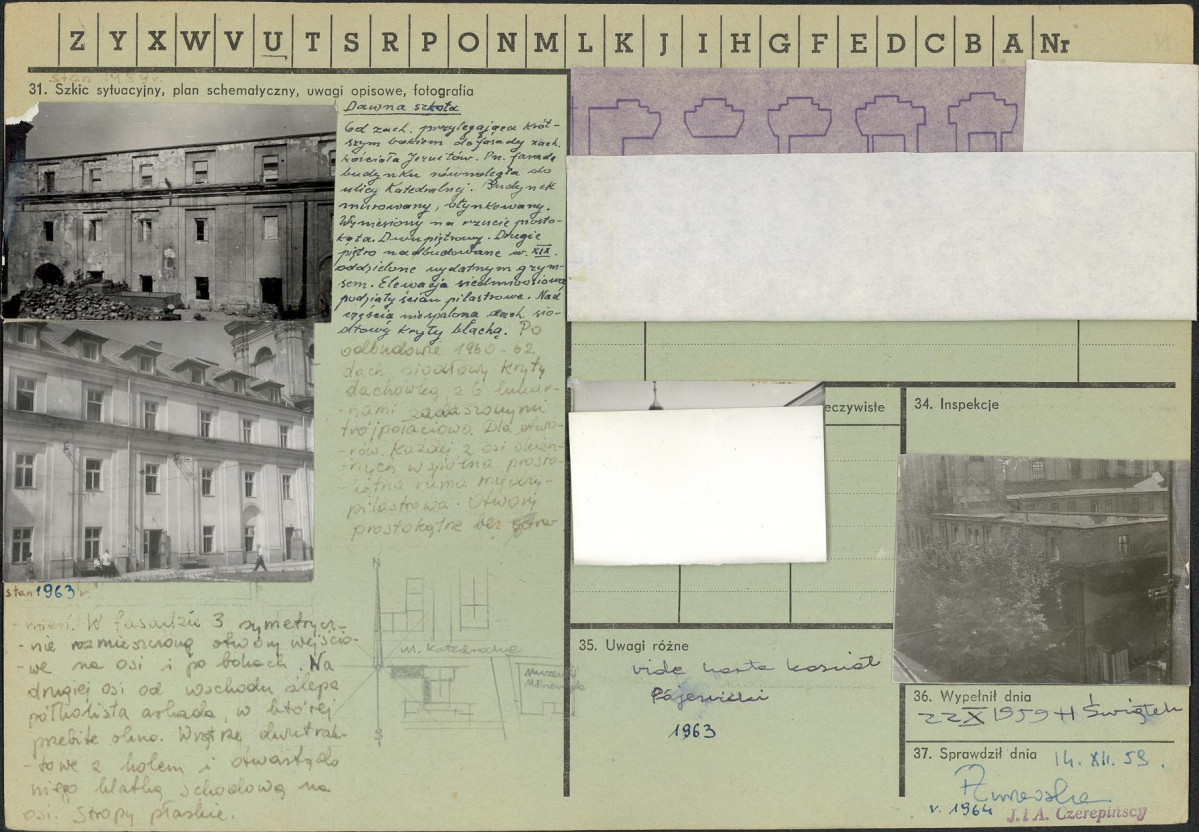 Z Y X W V U T S R P O N M L K J I H G F E D C B A Nr
stan 1959 r.
31. Szkic sytuacyjny, plan schematyczny, uwagi opisowe, fotografia
Dawna szkoła
Od zach. przylegająca krót-
szym bokiem do fasady zach.
kościoła Jezuitów. Pn. fasada
budynku równoległa do
ulicy Katedralnej. Budynek
murowany, otynkowany.
Wyniesiony na rzucie prosto-
kąta. Dwupiętrowy. Drugie
piętro nadbudowane w. XIX
oddzielone wydatnym gzym-
sem. Elewacja siedmioosiowa
podziały ścian pilastrowe. Nad
częścią niespaloną dach sio-
dłowy kryty blachą. Po
odbudowie 1960-62
dach siodłowy kryty
dachówką z 6 lukar-
-nami zadaszonymi
trójpołaciowo. Dla otwo-
rów każdej z osi okien-
-nych wspólna prosto-
-kątna rama między-
pilastrowa. Otwory
prostokątne bez obra-
stan 1963 r.
-mień. W fasadzie 3 symetrycz-
-nie rozmieszczone otwory wejścio-
-we na osi i po bokach. Na
drugiej osi od wschodu ślepa
półkolista arkada, w której
przebite okno. Wnętrze dwutrak-
-towe z holem i otwartą do
niego klatką schodową na
osi. Stropy płaskie.
N
ul. Katedralna
Muzeum
S
eczywiste
34. Inspekcje
35. Uwagi różne
vide karta kościół
Pojezuicki
1963
36. Wypełnił dnia
22 X 1959 H Świątek
37. Sprawdził dnia
14. XII. 59.
v. 1964
J. i A. Czerepińscy